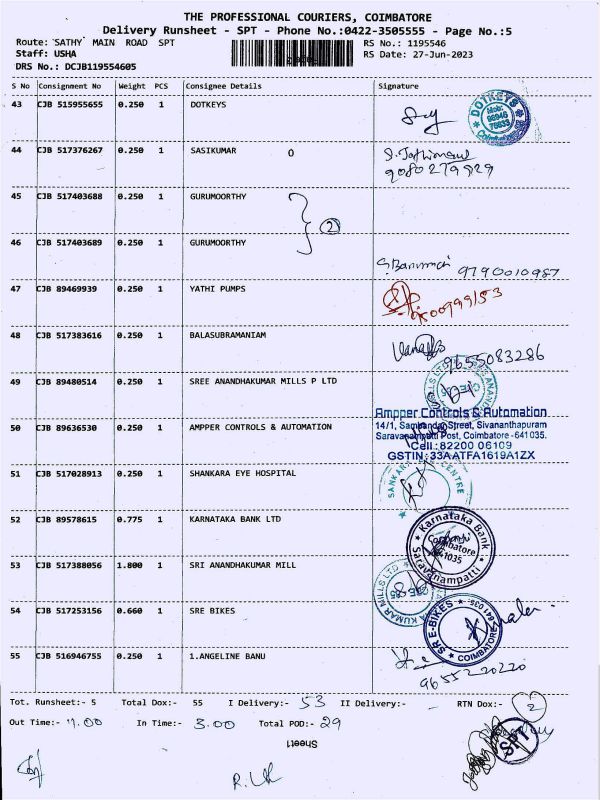 THE PROFESSIONAL COURIERS, COIMBATORE
Delivery Runsheet - SPT - Phone No.:0422-3505555 - Page No.:5
Route: 'SATHY' MAIN ROAD SPT
RS No.: 1195546
Staff: USHA
RS Date: 27-Jun-2023
DRS No.: DCJB119554605
S No Consignment No Weight PCS Consignee Details Signature
43 CJB 515955655 0.250 1 DOTKEYS
DOTKEYS
Coimbatore
44 CJB 517376267 0.250 1 SASIKUMAR 0
9080279829
45 CJB 517403688 0.250 1 GURUMOORTHY
2
46 CJB 517403689 0.250 1 GURUMOORTHY
9790010987
47 CJB 89469939 0.250 1 YATHI PUMPS
48 CJB 517383616 0.250 1 BALASUBRAMANIAM
9655083286
49 CJB 89480514 0.250 1 SREE ANANDHAKUMAR MILLS P LTD
50 CJB 89636530 0.250 1 AMPPER CONTROLS & AUTOMATION
Ampper Controls & Automation
14/1, Sambandar Street, Sivananthapuram
Saravanampatti Post, Coimbatore - 641 035.
Cell : 82200 06109
GSTIN : 33AATFA1619A1ZX
51 CJB 517028913 0.250 1 SHANKARA EYE HOSPITAL
SANKARA CENTRE
52 CJB 89578615 0.775 1 KARNATAKA BANK LTD
Karnataka Bank
Coimbatore
Saravanampatti
53 CJB 517388056 1.800 1 SRI ANANDHAKUMAR MILL
KUMAR MILLS LTD
54 CJB 517253156 0.660 1 SRE BIKES
SRE-BIKES
COIMBATORE 641 035
55 CJB 516946755 0.250 1 1.ANGELINE BANU
9655220220
Tot. Runsheet:- 5 Total Dox:- 55 I Delivery:- 53 II Delivery:- - RTN Dox:- 2
Out Time:- 9.00 In Time:- 3.00 Total POD:- 29
Sheet1
SPT